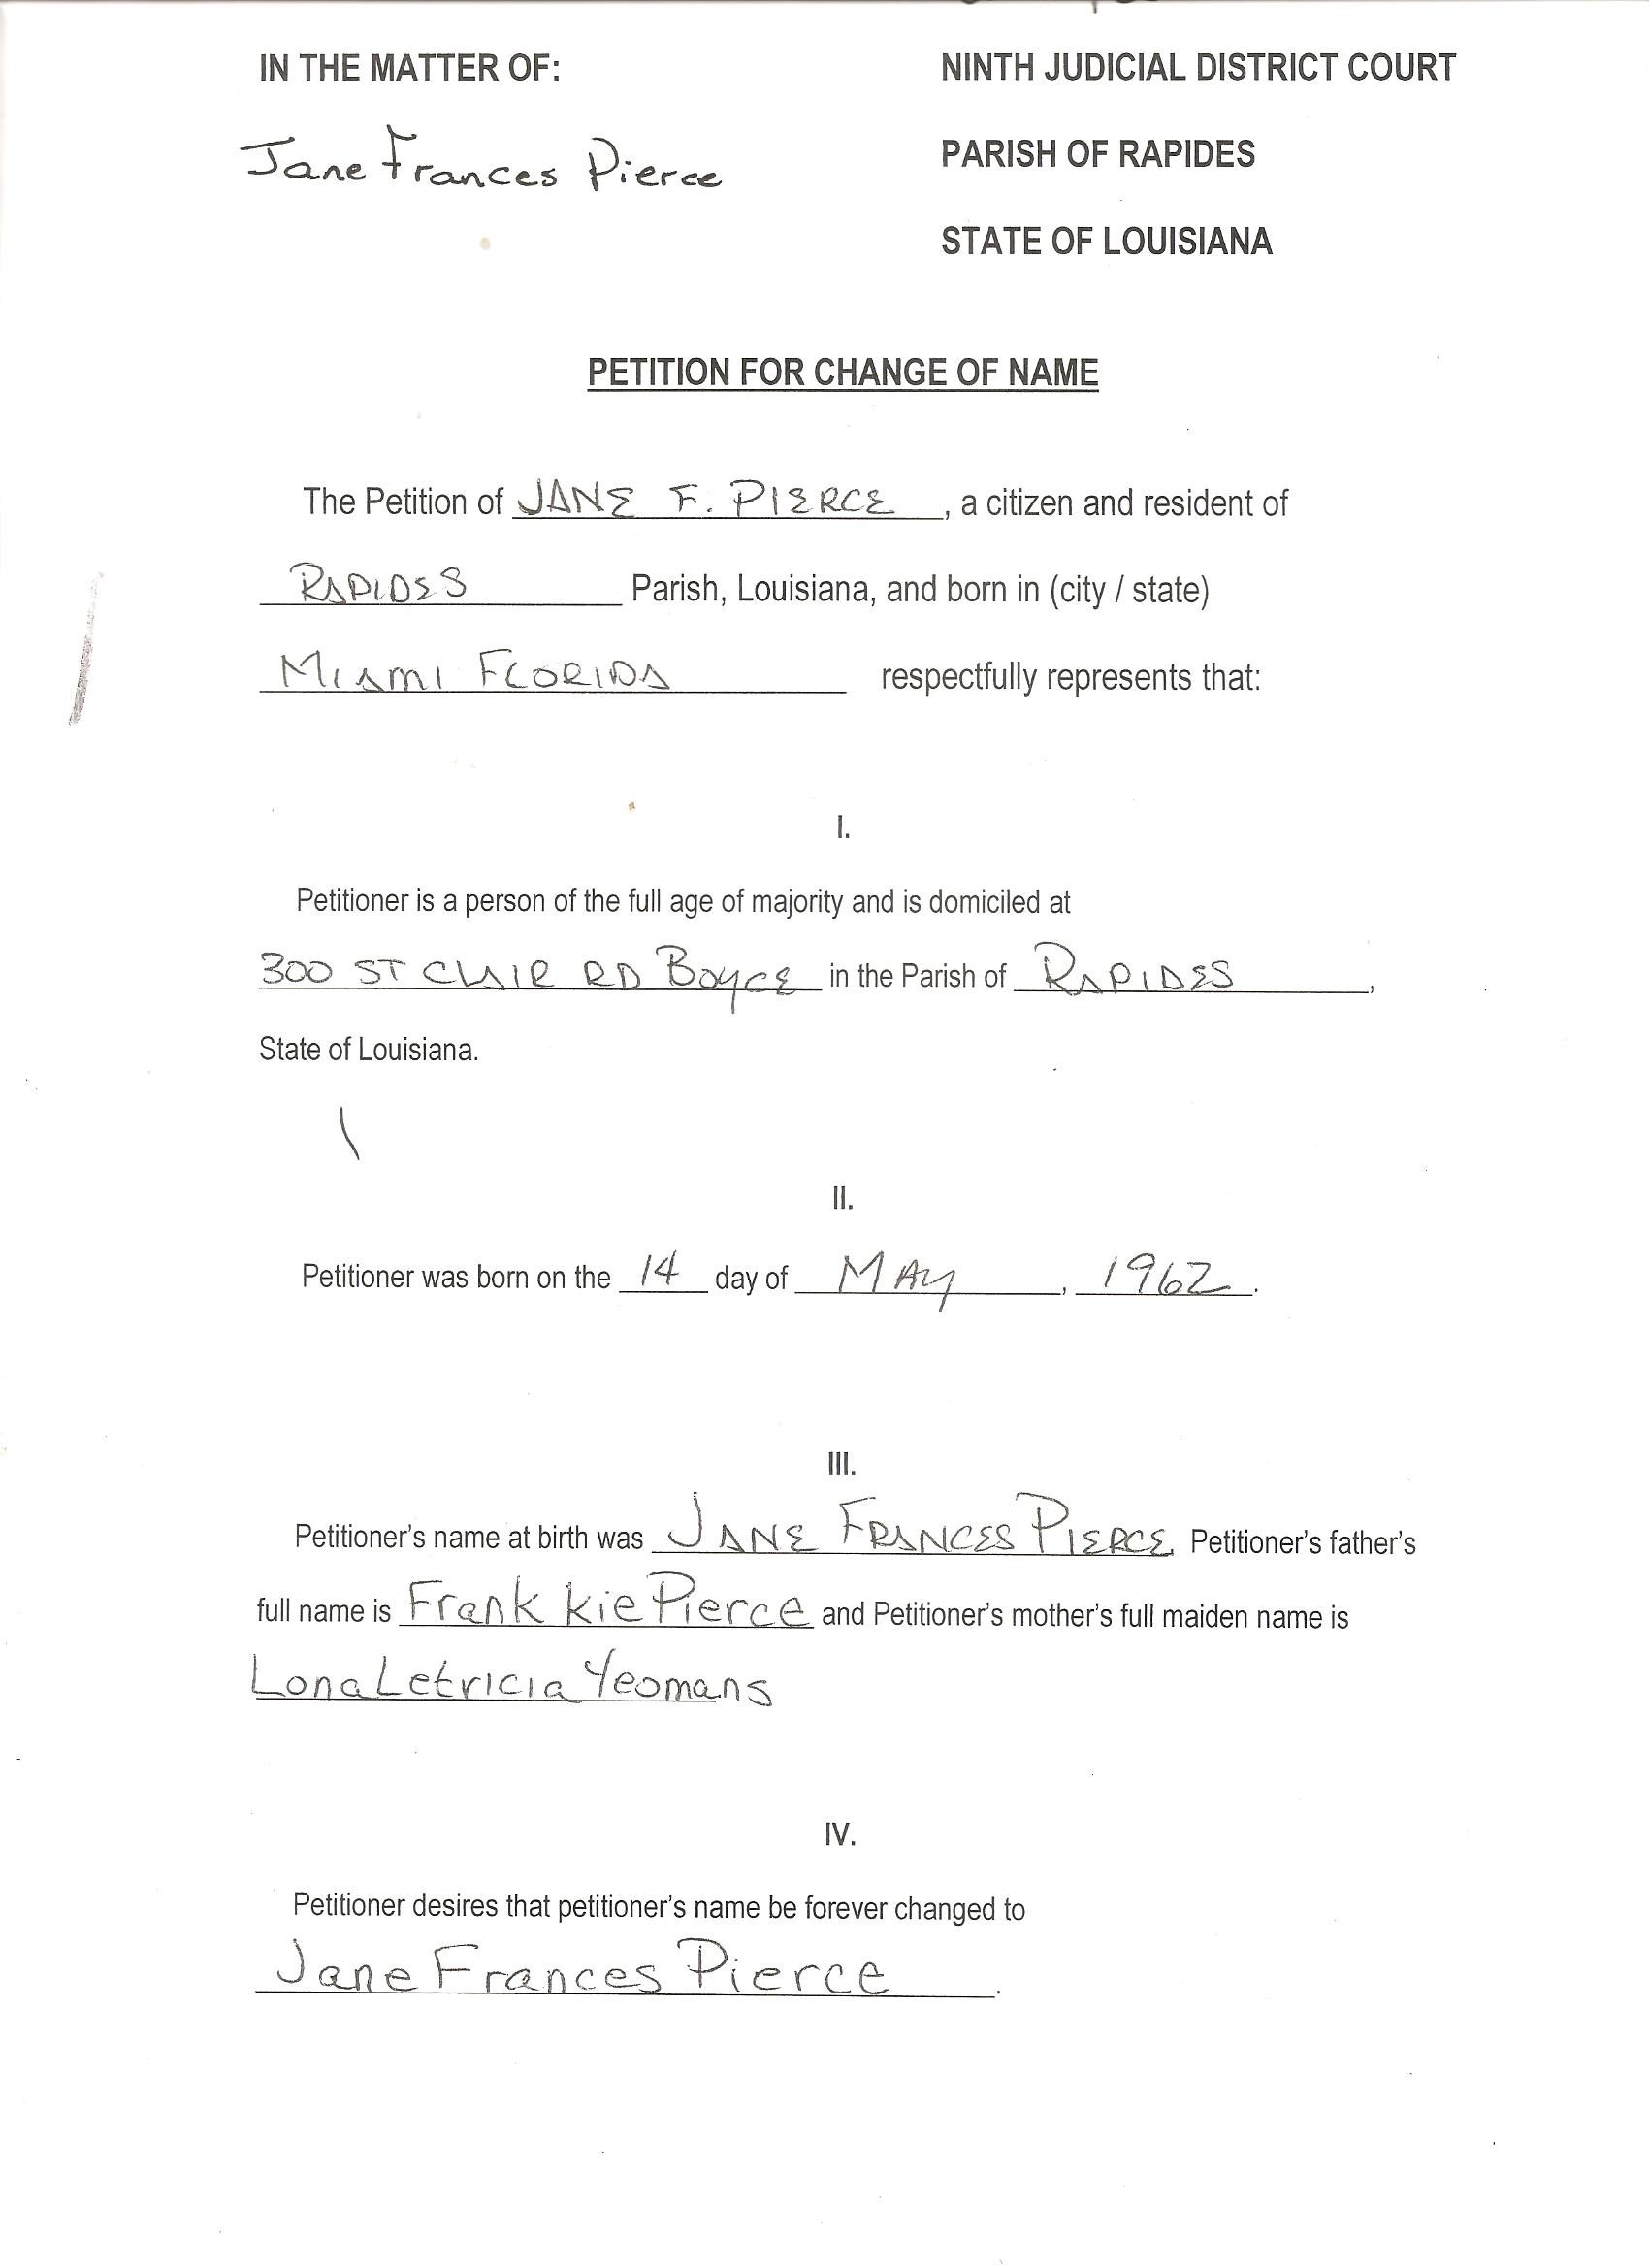 IN THE MATTER OF:
Jane Frances Pierce
NINTH JUDICIAL DISTRICT COURT
PARISH OF RAPIDES
STATE OF LOUISIANA
PETITION FOR CHANGE OF NAME
The Petition of JANE F. PIERCE, a citizen and resident of
RAPIDES Parish, Louisiana, and born in (city / state)
MIAMI FLORIDA respectfully represents that:
I.
Petitioner is a person of the full age of majority and is domiciled at
300 ST CLAIR RD Boyce in the Parish of RAPIDES,
State of Louisiana.
II.
Petitioner was born on the 14 day of MAy, 1962.
III.
Petitioner's name at birth was JANE FRANCES PIERCE. Petitioner's father's
full name is Frank kie Pierce and Petitioner's mother's full maiden name is
Lona Letricia Yeomans
IV.
Petitioner desires that petitioner's name be forever changed to
Jane Frances Pierce.